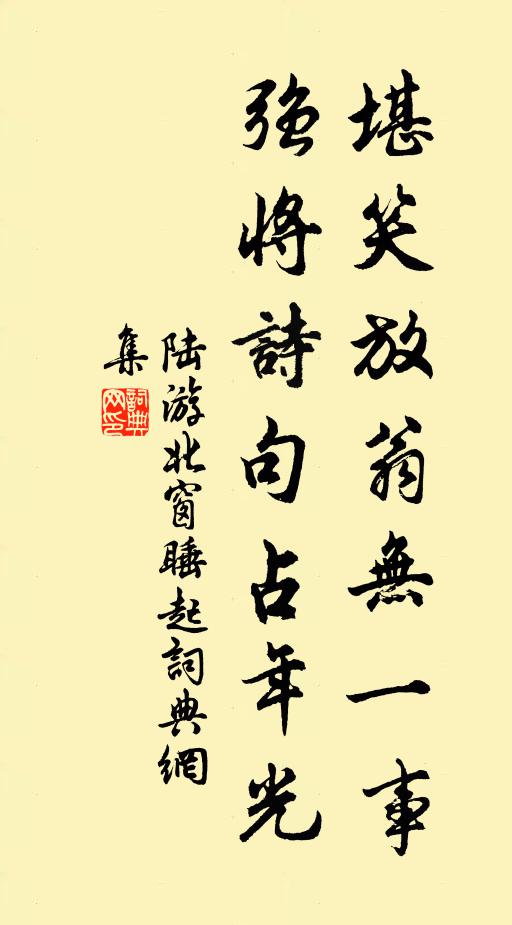 堪笑放翁無一事
強將詩句占年光
陸游北窗睡起詞典網
集
詞典网印